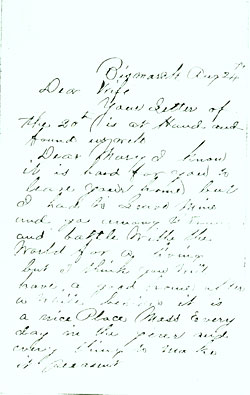 Bismarck Aug 24th
Dear Wife
Your Letter of
the 20th is at Hand and
found
Dear Mary I know
it is hard for you to
leave your home but
I had to leave mine
and go away
and battle with the
World for a living
but I think you will
have a good home
it is
a nice Place Mass Every
day in the year and
every thing to make
it pleasant